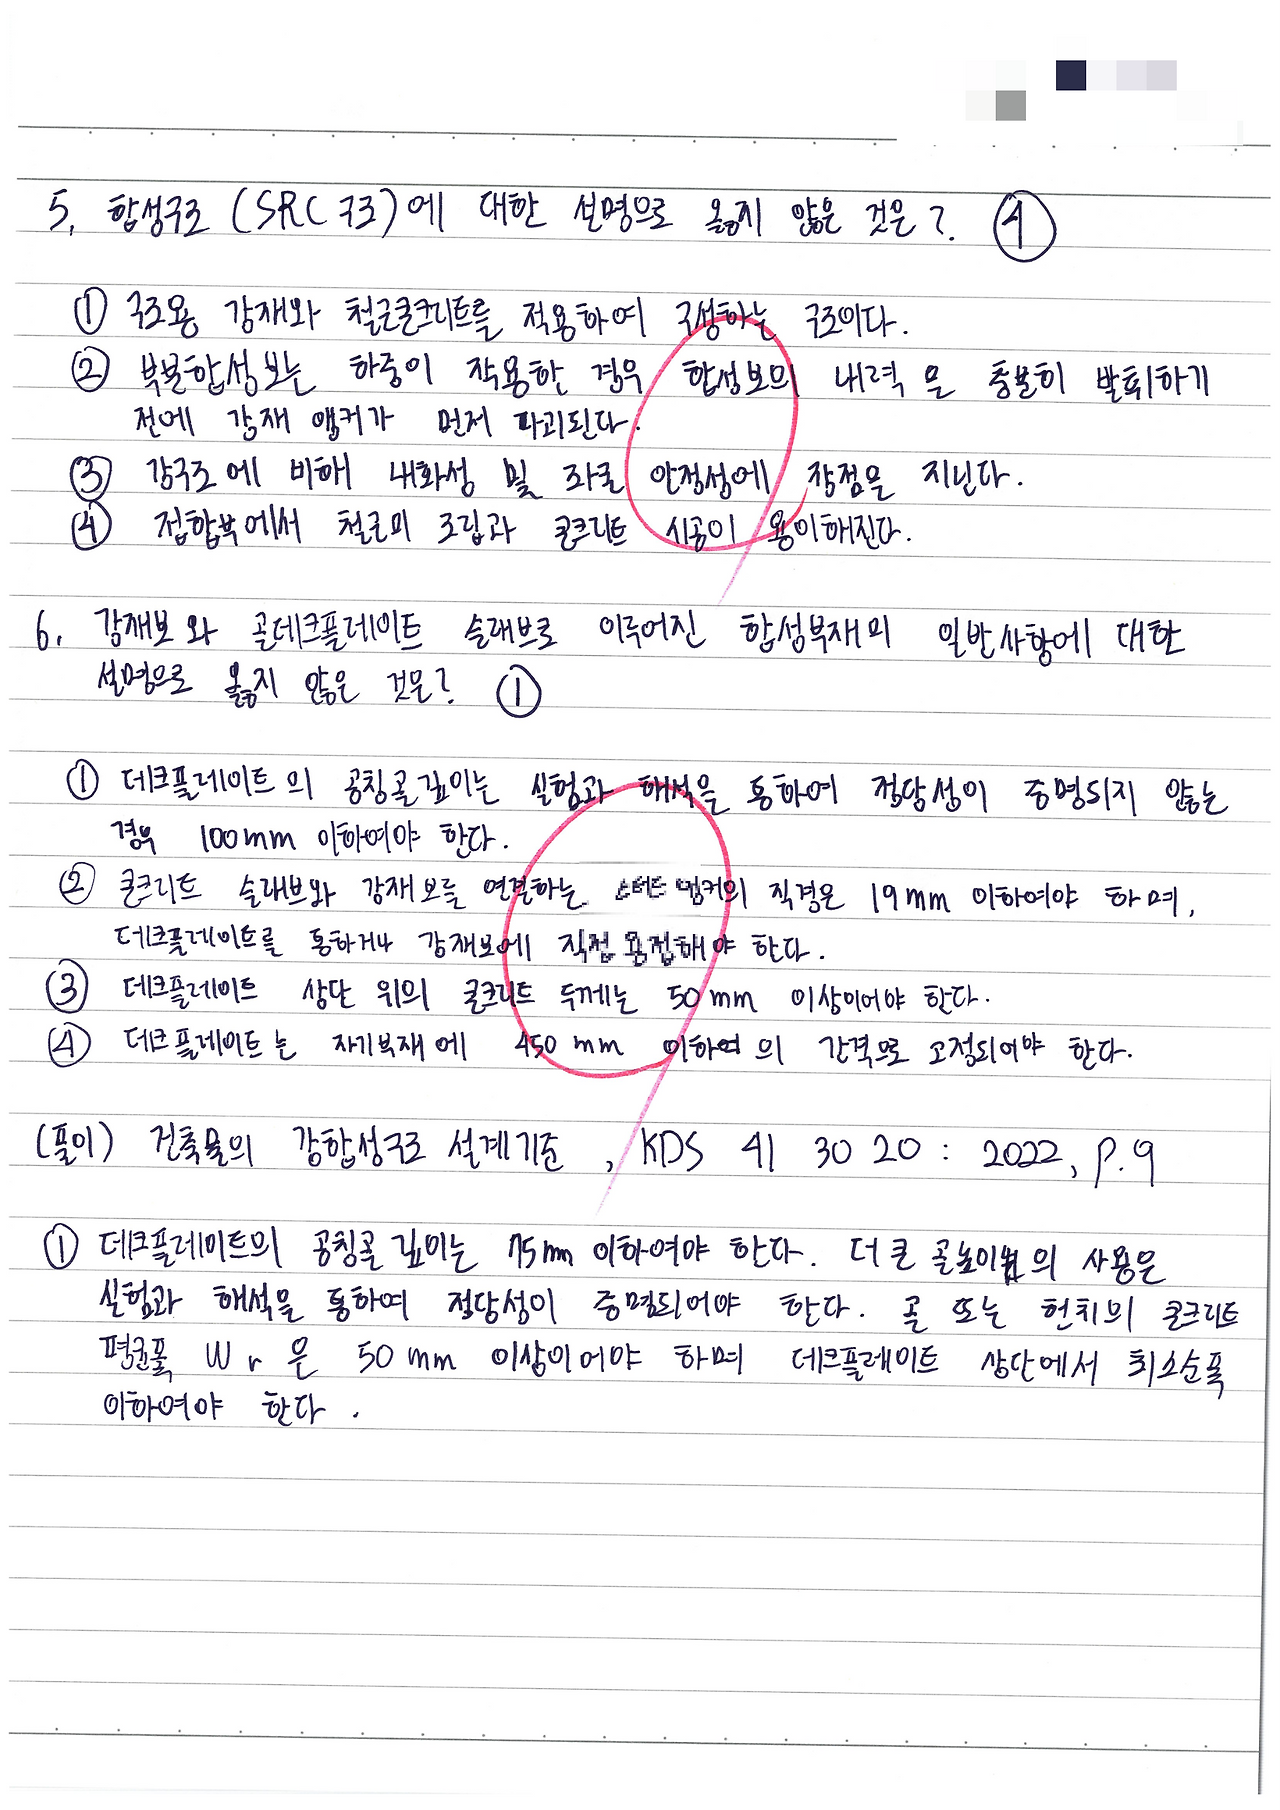 5. 합성구조 (SRC 구조)에 대한 설명으로 옳지 않은 것은? ④
① 구조용 강재와 철근콘크리트를 적용하여 구성하는 구조이다.
② 부분합성보는 하중이 작용한 경우 합성보의 내력을 충분히 발휘하기
전에 강재 앵커가 먼저 파괴된다.
③ 강구조에 비해 내화성 및 좌굴 안정성에 장점을 지닌다.
④ 접합부에서 철근의 조립과 콘크리트 시공이 용이해진다.
6. 강재보와 골데크플레이트 슬래브로 이루어진 합성부재의 일반사항에 대한
설명으로 옳지 않은 것은? ①
① 데크플레이트의 공칭골깊이는 실험과 해석을 통하여 정당성이 증명되지 않는
경우 100mm 이하여야 한다.
② 콘크리트 슬래브와 강재보를 연결하는 스터드 앵커의 직경은 19mm 이하여야 하며,
데크플레이트를 통하거나 강재보에 직접 용접해야 한다.
③ 데크플레이트 상단 위의 콘크리트 두께는 50mm 이상이어야 한다.
④ 데크플레이트는 지지부재에 450mm 이하의 간격으로 고정되어야 한다.
(풀이) 건축물의 강합성구조 설계기준, KDS 41 30 20 : 2022, P.9
① 데크플레이트의 공칭골깊이는 75mm 이하여야 한다. 더 큰 골높이의 사용은
실험과 해석을 통하여 정당성이 증명되어야 한다. 골 또는 헌치의 콘크리트
평균폭 Wr은 50mm 이상이어야 하며 데크플레이트 상단에서 최소순폭
이하여야 한다.